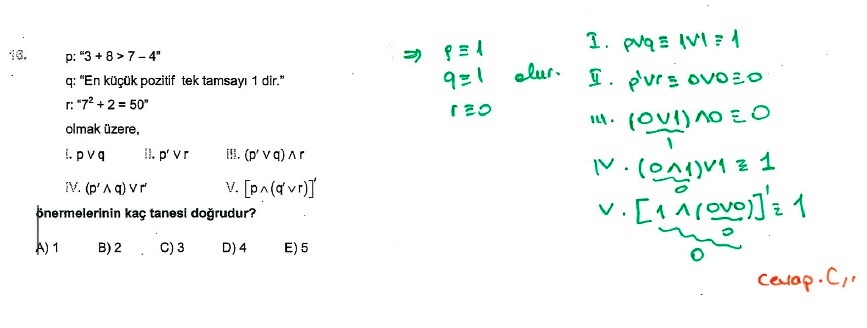 16. p: “3 + 8 > 7 – 4”
q: “En küçük pozitif tek tamsayı 1 dir.”
r: “7² + 2 = 50”
olmak üzere,
I. p ∨ q II. p′ ∨ r III. (p′ ∨ q) ∧ r
IV. (p′ ∧ q) ∨ r′ V. [p ∧ (q′ ∨ r)]′
önermelerinin kaç tanesi doğrudur?
A) 1 B) 2 C) 3 D) 4 E) 5
⇒ p ≡ 1
q ≡ 1 olur.
r ≡ 0
I. p∨q ≡ 1∨1 ≡ 1
II. p′∨r ≡ 0∨0 ≡ 0
III. (0∨1)∧0 ≡ 0
1
IV. (0∧1)∨1 ≡ 1
0
V. [1∧(0∨0)]′ ≡ 1
0
0
cevap. C,,